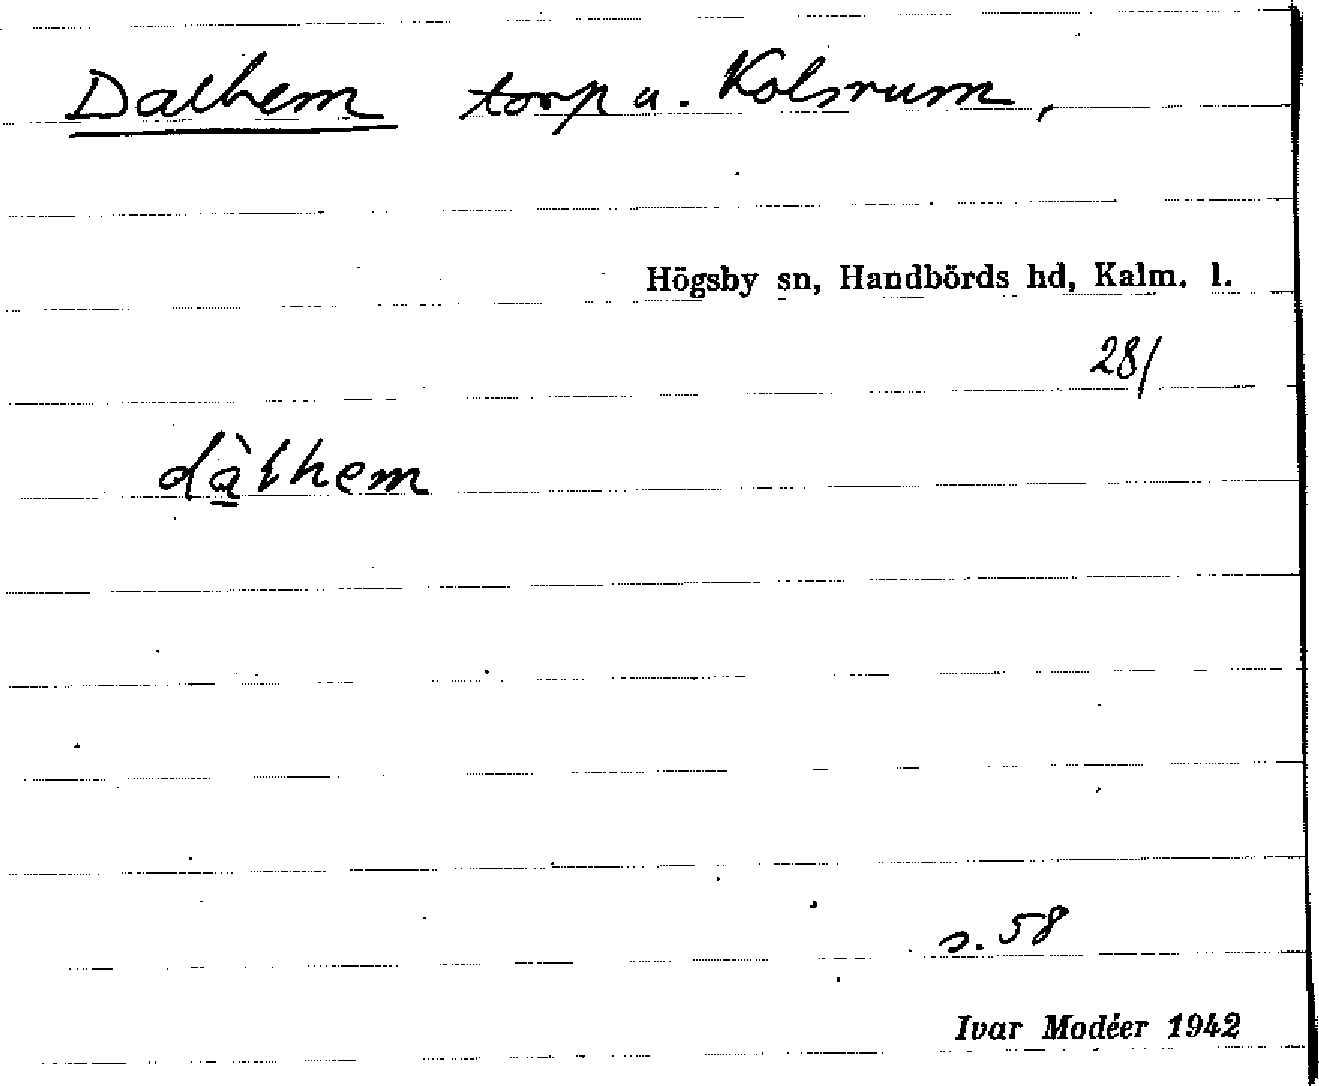 Dalhem torp u. Kolsrum,
Högsby sn, Handbörds hd, Kalm. l.
28/
dàlhem
s. 58
Ivar Modéer 1942